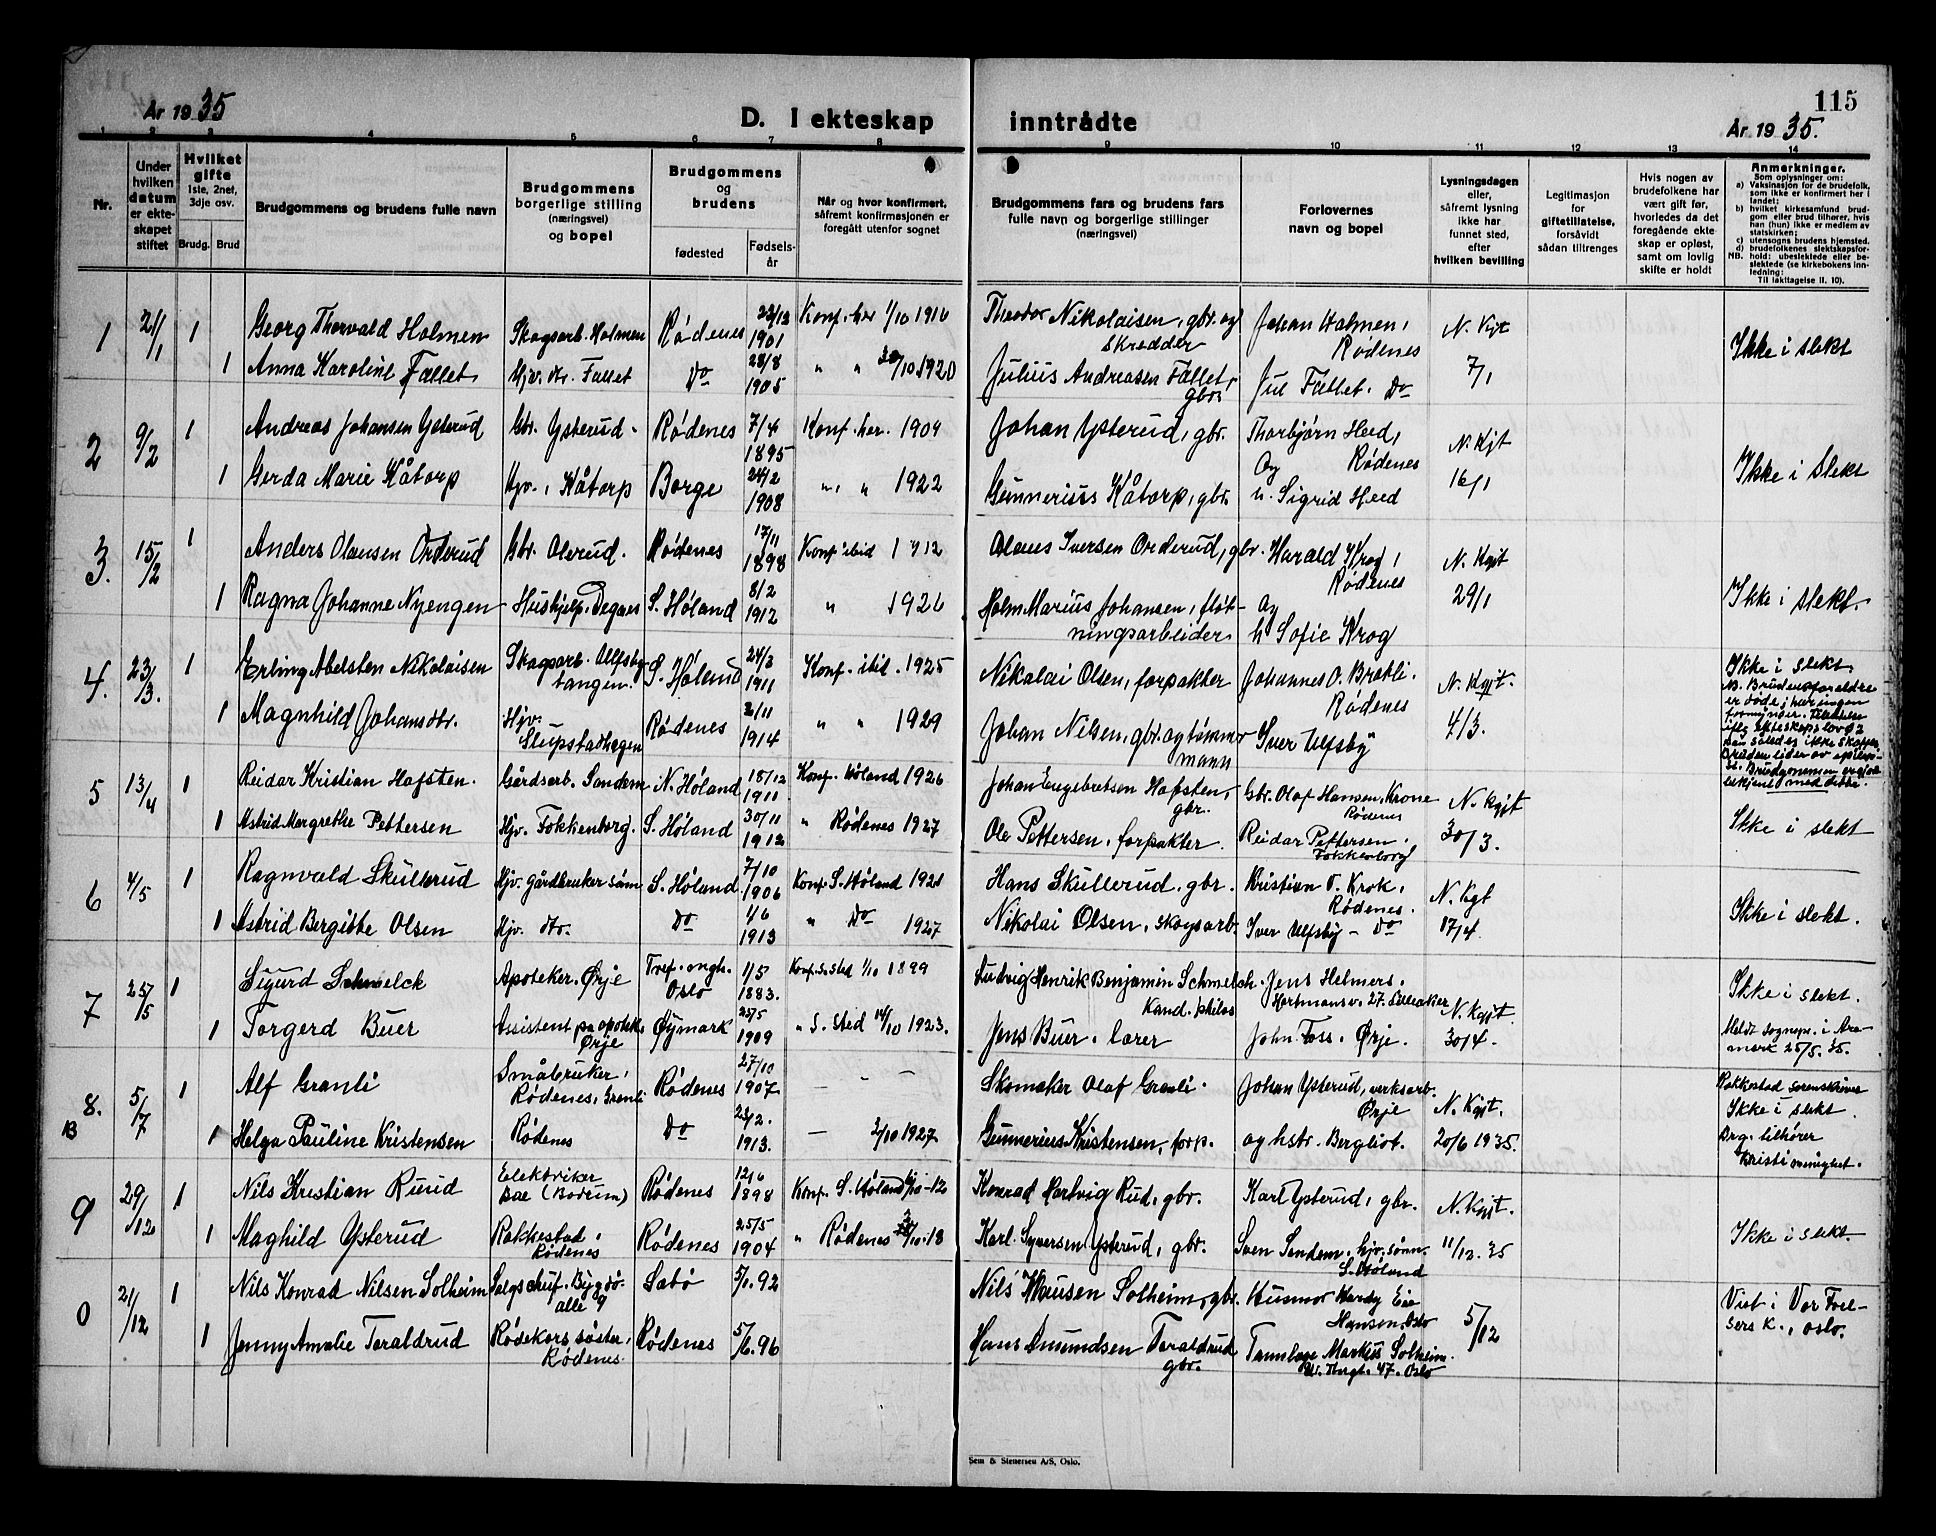 115
År 1935
D. I ekteskap inntrådte
År 1935.
1 2 3 4 5 6 7 8 9 10 11 12 13 14
Nr.
Under hvilken datum er ekteskapet stiftet
Hvilket gifte
1ste, 2net, 3dje osv.
Brudg. Brud
Brudgommens og brudens fulle navn
Brudgommens borgerlige stilling (næringsvei) og bopel
Brudgommens og brudens
fødested
Fødselsår
Når og hvor konfirmert, såfremt konfirmasjonen er foregått utenfor sognet
Brudgommens fars og brudens fars fulle navn og borgerlige stillinger (næringsvei)
Forlovernes navn og bopel
Lysningsdagen eller, såfremt lysning ikke har funnet sted, efter hvilken bevilling
Legitimasjon for giftetillatelse, forsåvidt sådan tiltrenges
Hvis nogen av brudefolkene har vært gift før, hvorledes da det foregående ekteskap er opløst, samt om lovlig skifte er holdt
Anmerkninger.
Som oplysninger om:
a) Vaksinasjon for de brudefolk, som ikke er konfirmert her i landet;
b) hvilket kirkesamfund brudgom eller brud tilhører, hvis han (hun) ikke er medlem av statskirken;
c) utensogns brudens hjemsted.
d) brudefolkenes slektskapsforhold: ubeslektede eller beslektede (se kirkebokens innledning:
NB.
Til Iakttagelse II. 10).
1 21/1 1 Georg Thorvald Holmen Skogsarb. Holmen Rødenes 23/12 1901 Konf. her 1/10 1916 Theodor Nikolaisen, gbr. og skredder Johan Holmen, Rødenes N. Kgt 7/1 Ikke i slekt
1 Anna Karoline Fallet Hjv. dtr. Fallet Do 28/8 1905 " " /10 1920 Julius Andreasen Fallet, gbr. Jul Fallet. Do
2 9/2 1 Andreas Johansen Ysterud Gbr. Ysterud Rødenes 7/4 1895 Konf. her. 1909 Johan Ysterud, gbr. Thorbjørn Heed, Rødenes N. Kgjt 16/1 Ikke i Slekt
1 Gerda Marie Kåtorp Hjv., Kåtorp Borge 24/2 1908 " " 1922 Gunnerius Kåtorp, gbr. Og h. Sigrid Heed
3. 15/2 1 Anders Olausen Orderud Gbr. Olerud. Rødenes 17/11 1898 Konf ibid 1912 Olaus Iversen Orderud, gbr. Harald Krog, Rødenes N. Kgjt 29/1 Ikke i slekt.
1 Ragna Johanne Nyengen Hushjelp. Degnes S. Høland 8/2 1912 " 1926 Holm. Marius Johansen, fløtningsarbeider og h Sofie Krog
4. 23/3. 1 Erling Abelsten Nikolaisen Skogsarb. Ulfsbytangen. S. Høland 24/3 1911 Konf. ibid. 1925 Nikolai Olsen, forpakter Johannes O. Bratli. Rødenes N. Kgjt. 4/3. Ikke i slekt.
1 Magnhild Johansdtr. Hjv. Slupstadhagen Rødenes 2/11 1914 " " 1929 Johan Nilsen, gbr. og tømmermann Iver Ulfsby Brudens foreldre er døde; har ingen formynder.
5 13/4 1 Reidar Kristian Hafsten. Gårdsarb. Sandem N. Høland 18/12 1911 Konf. Høland 1926 Johan Engebretsen Hafsten, gbr. Gbr. Olaf Hansen, Krone Rødenes N. Kgjt 30/3. Ikke i slekt
1 Astrid Margrethe Pettersen Hjv. Fokkenborg. S. Høland 30/11 1912 " Rødenes 1927 Ole Pettersen, forpakter. Reidar Pettersen. Fokkenborg
6 4/5 1 Ragnvald Skullerud Hjv. gårdbrukersøn S. Høland 7/10 1906 Konf. S. Høland 1921 Hans Skullerud, gbr. Kristian O. Krok, Rødenes. N. Kgt 17/4. Ikke i slekt.
1 Astrid Bergitte Olsen Hjv. dtr. Do 4/6 1913 " Do 1927 Nikolai Olsen, skogsarb. Iver Ulfsby - Do
7 25/5 1 Sigurd Schmelck Apoteker. Ørje Tref. mgh. Oslo 1/5 1883. Konf. s. sted 1/10 1899 Ludvig Henrik Benjamin Schmelck. Kand. philos Jens Helmers. Hartmansv. 27. Lilleaker N. Kgjt. 30/4. Ikke i slekt.
1 Torgerd Buer Assistent på apotek. Ørje Øymark 25/5 1909 " S. sted 14/10 1923. Jens Buer. lærer John Foss. Ørje. Meldt sognepr. i Aremark 25/5. 35.
8. 5/7 1 Alf Granli Småbruker, Rødenes, Granli Rødenes 27/10 1907 — — — Skomaker Olaf Granli. Johan Ysterud, verksarb. Ørje N. Kgjt. 20/6 1935. Rakkestad sorenskriver Ikke i slekt.
B 1 Helga Pauline Kristensen Rødenes Do 23/2. 1913. — 2/10 1927 Gunnerius Kristensen, forp. og hstr. Bergliot. Brg. tilhører Kristi menighet.
9 29/12 1 Nils Kristian Ruud Elektriker Bae (Bærum) Rødenes 12/6 1898 Konf. S. Høland /10-12 Konrad Hartvig Rud, gbr. Karl Ysterud, gbr. N. Kgjt. 11/12. 35 Ikke i slekt.
1 Maghild Ysterud Rakkestad, Rødenes Rødenes 25/5 1904 " Rødenes /10-18 Karl. Syversen Ysterud, gbr. Sven Sandem, hjv. sønn. S. Høland
0 21/12 1 Nils Konrad Nilsen Solheim Salgschef. Bygdø alle 9 Sabø 5/1. 92 Nils Knusen Solheim, gbr. Husmor Hardy Eie Hansen, Oslo 5/12 Viet i Vor Frelsers K., Oslo.
1 Jenny Amalie Taraldrud Rødekorssøster, Rødenes Rødenes 5/6. 96 Hans Amundsen Taraldrud gbr. Tannlæge Markus Solheim. Thrgt. 47. Oslo
Sem & Stenersen A/S, Oslo.